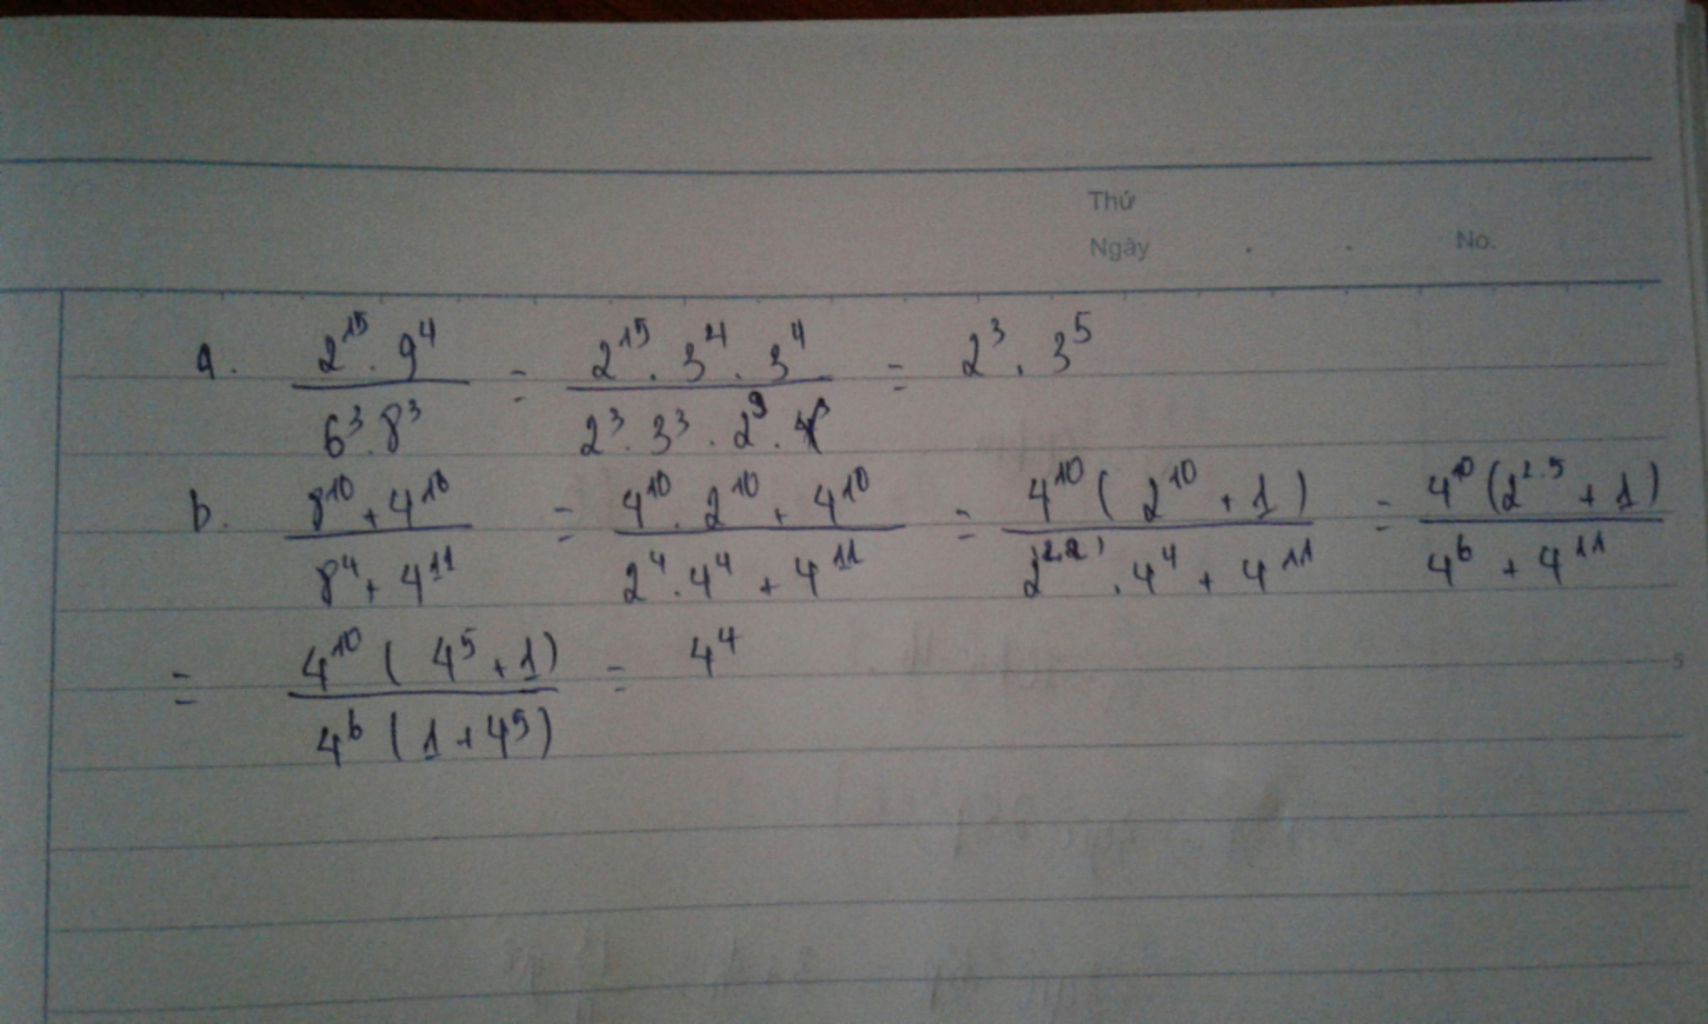 Thứ
Ngày . . No.
a. \frac{2^{15} . 9^4}{6^3 . 8^3} = \frac{2^{15} . 3^4 . 3^4}{2^3 . 3^3 . 2^9 .} = 2^3 . 3^5
b. \frac{8^{10} + 4^{10}}{8^4 + 4^{11}} = \frac{4^{10} . 2^{10} + 4^{10}}{2^4 . 4^4 + 4^{11}} = \frac{4^{10} ( 2^{10} + 1 )}{2^{2.2} . 4^4 + 4^{11}} = \frac{4^{10} (2^{2.5} + 1)}{4^6 + 4^{11}}
= \frac{4^{10} ( 4^5 + 1)}{4^6 ( 1 + 4^5)} = 4^4